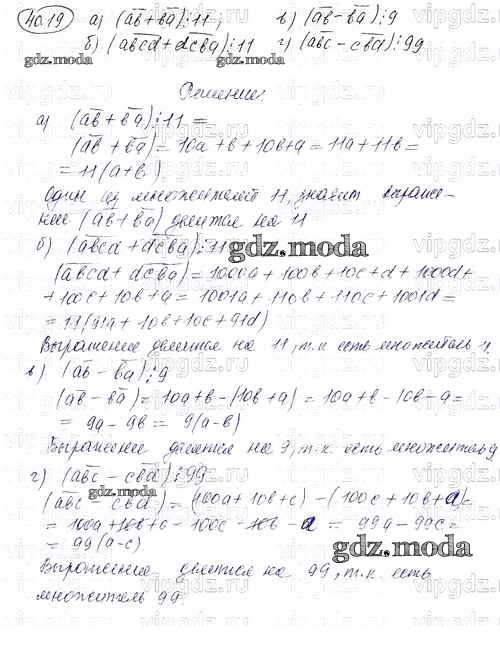 40.19 а) (ab+ba)⋮11; в) (ab-ba)⋮9
б) (abcd+dcba)⋮11 г) (abc-cba)⋮99
Решение:
а) (ab+ba)⋮11 =
(ab+ba) = 10a+b+10b+a = 11a+11b =
= 11(a+b).
Один из множителей 11, значит выраже-
ние (ab+ba) делится на 11
б) (abcd+dcba)⋮11
(abcd+dcba) = 1000a+100b+10c+d+1000d+
+100c+10b+a = 1001a+110b+110c+1001d =
= 11(91a+10b+10c+91d)
Выражение делится на 11, т.к есть множитель 11.
в) (ab-ba)⋮9
(ab-ba) = 10a+b-(10b+a) = 10a+b-10b-a =
= 9a-9b = 9(a-b)
Выражение делится на 9, т.к. есть множитель 9
г) (abc-cba)⋮99
(abc-cba) = (100a+10b+c)-(100c+10b+a) =
= 100a+10b+c-100c-10b-a = 99a-99c =
= 99(a-c)
Выражение делится на 99, т.к. есть
множитель 99.
gdz.moda
vipgdz.ru